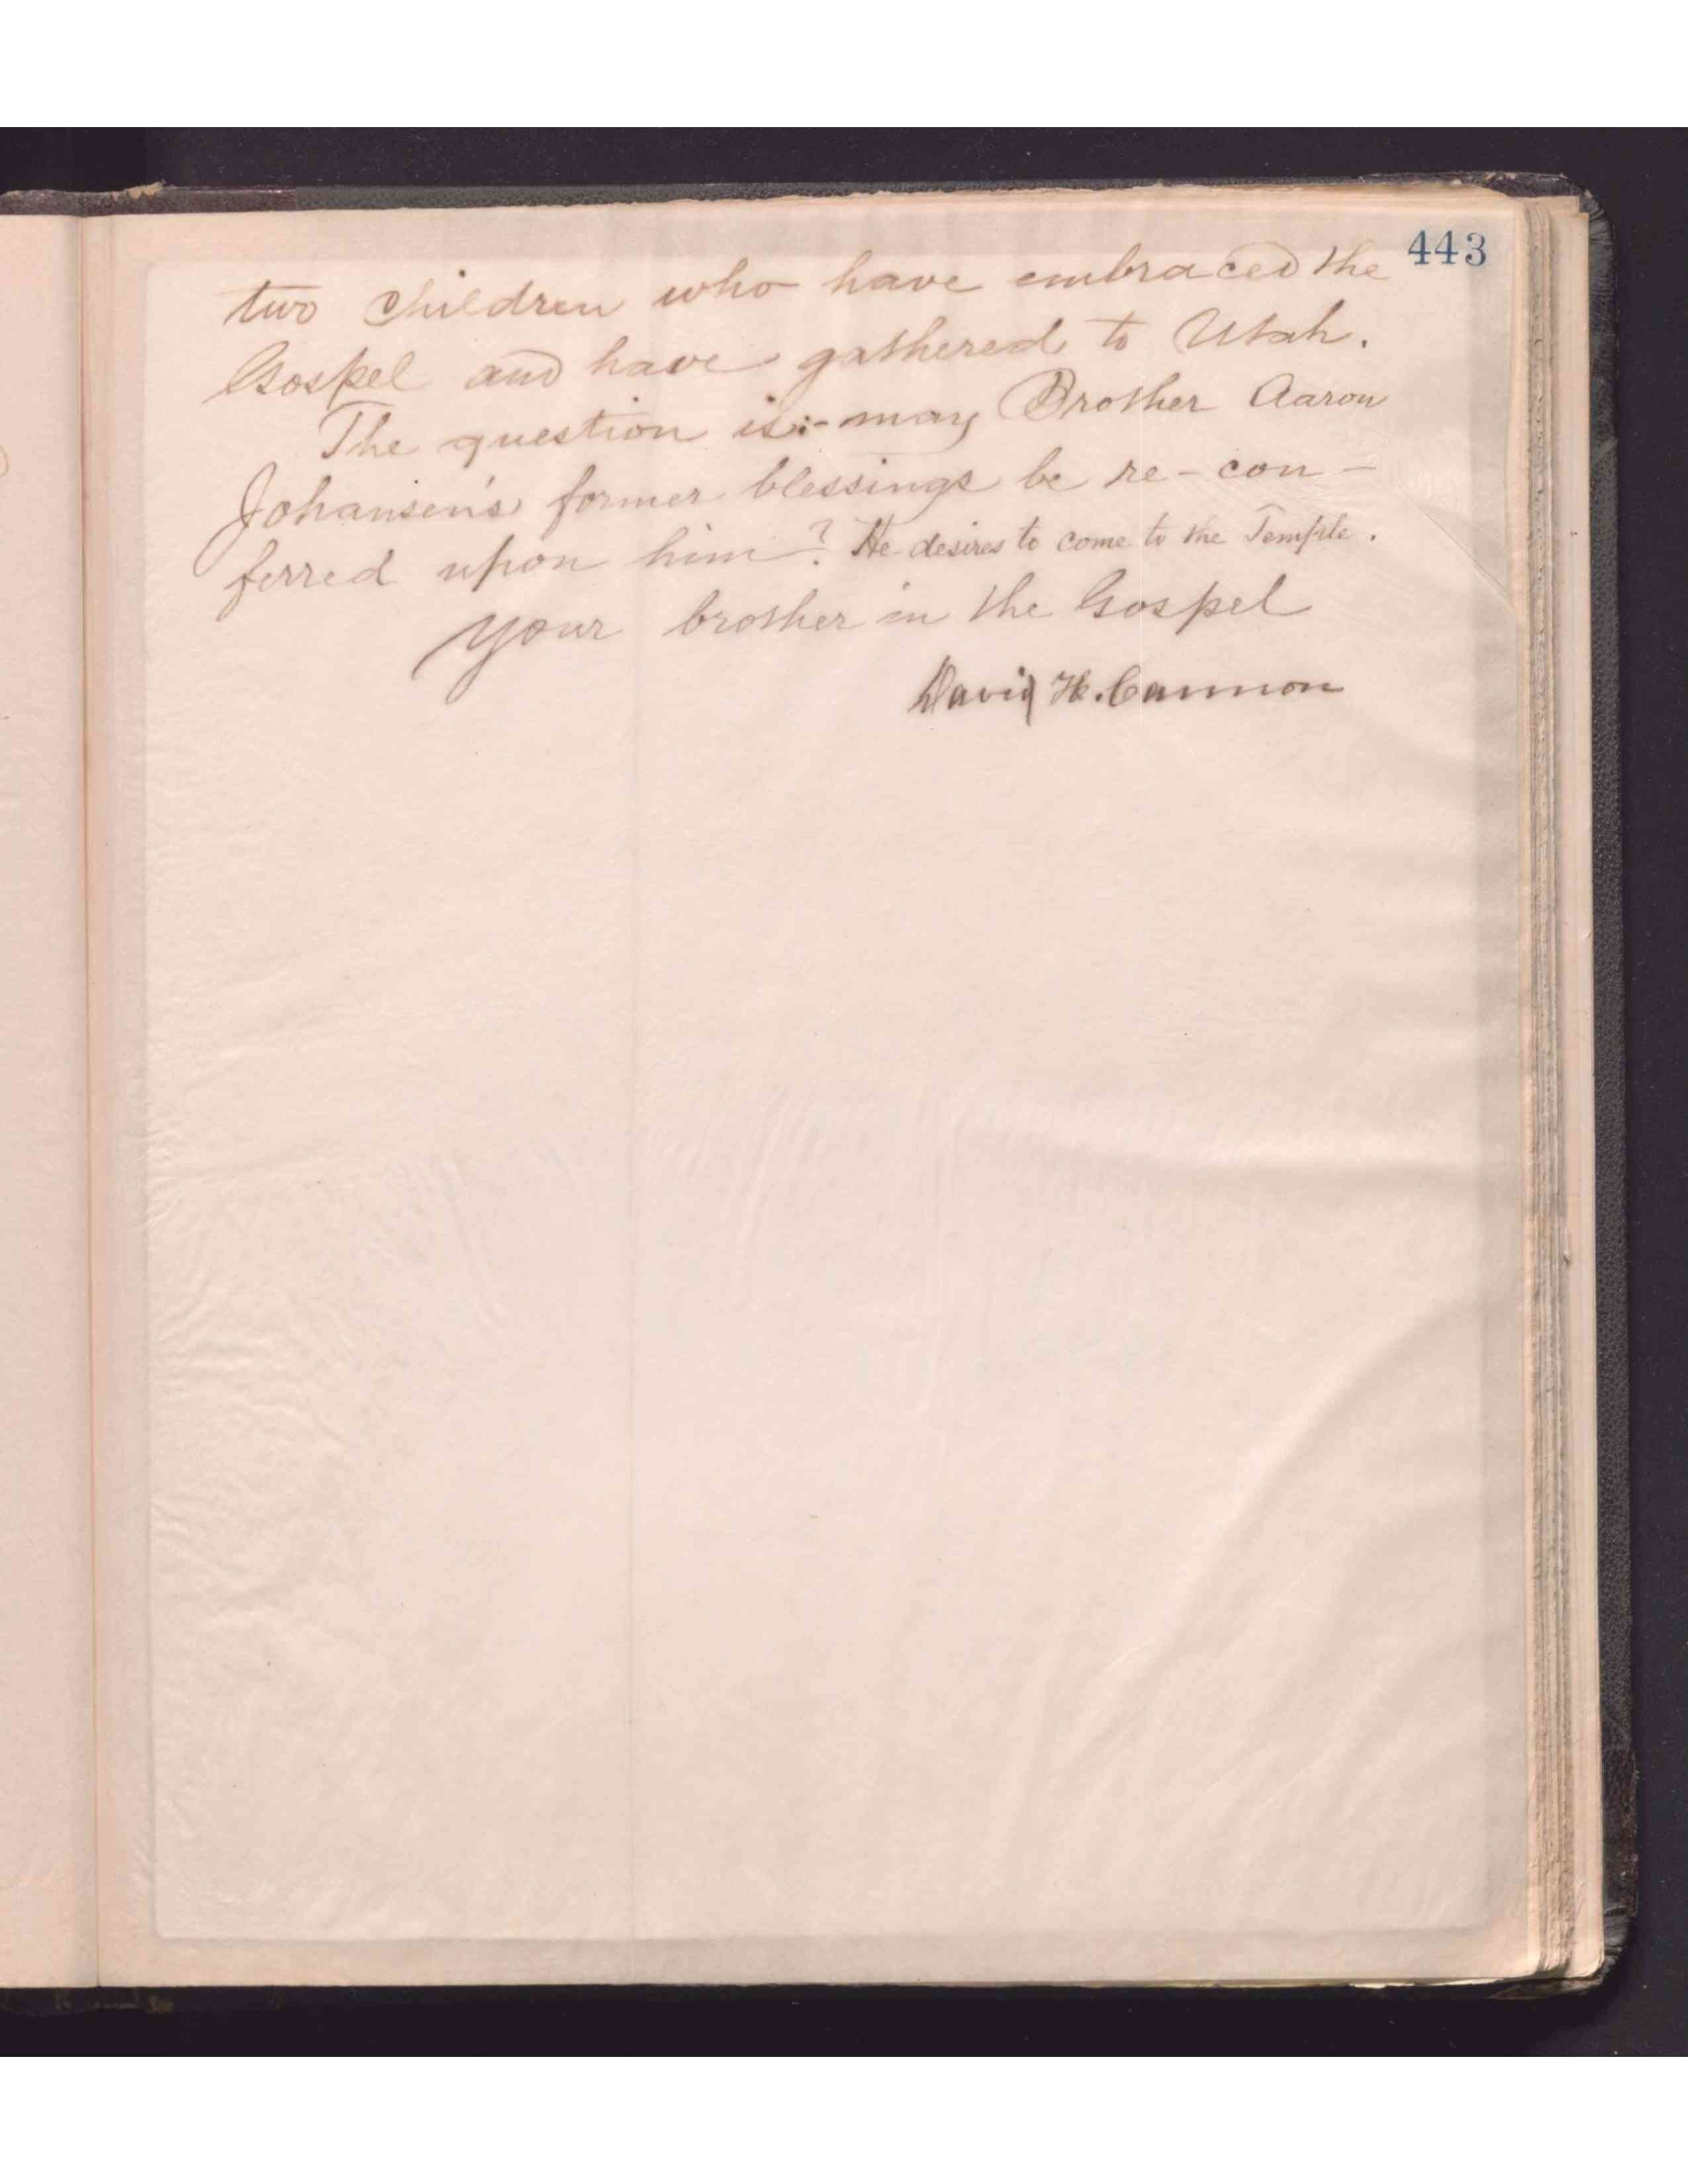 443
two children who have embraced the
Gospel and have gathered to Utah.
The question is:- may Brother Aaron
Johansen's former blessings be re-con-
ferred upon him? He desires to come to the Temple.
Your brother in the Gospel
David H. Cannon